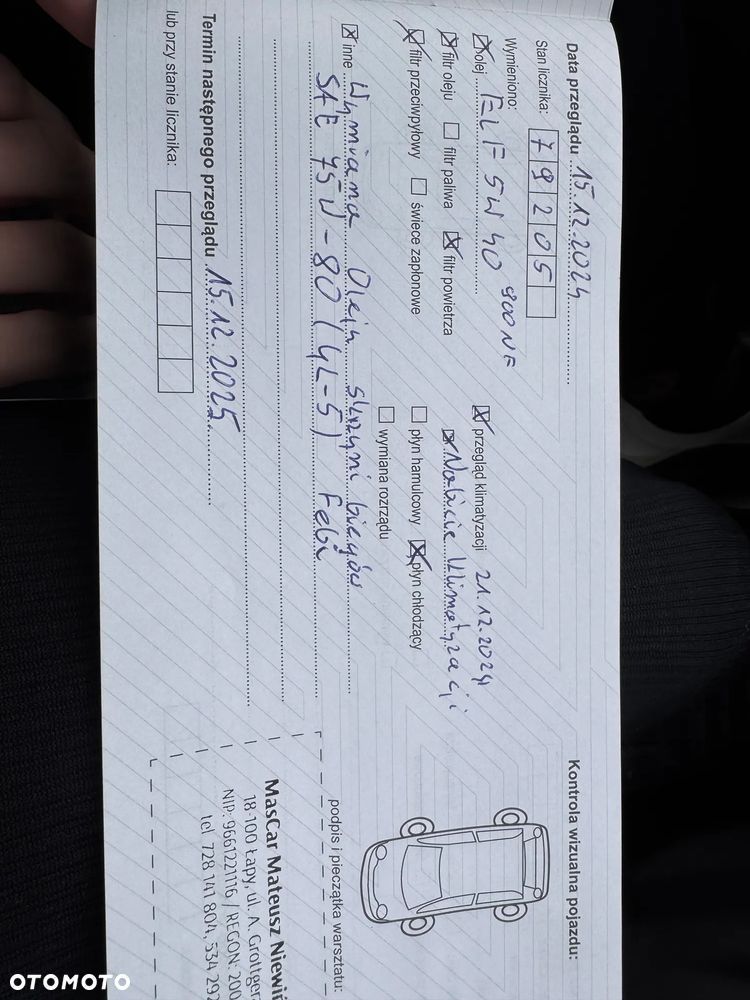 Data przeglądu 15.12.2024
Kontrola wizualna pojazdu:
Stan licznika: 79205
Wymieniono:
olej ELF 5W40 900NF
przegląd klimatyzacji 21.12.2024
filtr oleju filtr paliwa filtr powietrza
Nabicie klimatyzacji
filtr przeciwpyłowy świece zapłonowe
płyn hamulcowy płyn chłodzący
wymiana rozrządu
inne Wymiana Oleju skrzyni biegów
SAE 75W-80 (GL-5) Febi
podpis i pieczątka warsztatu:
Termin następnego przeglądu 15.12.2025
lub przy stanie licznika:
MasCar Mateusz Niewiń
18-100 Łapy, ul. A. Grottger
NIP: 9661221116 / REGON: 200
tel. 728 141 804, 534 292
OTOMOTO